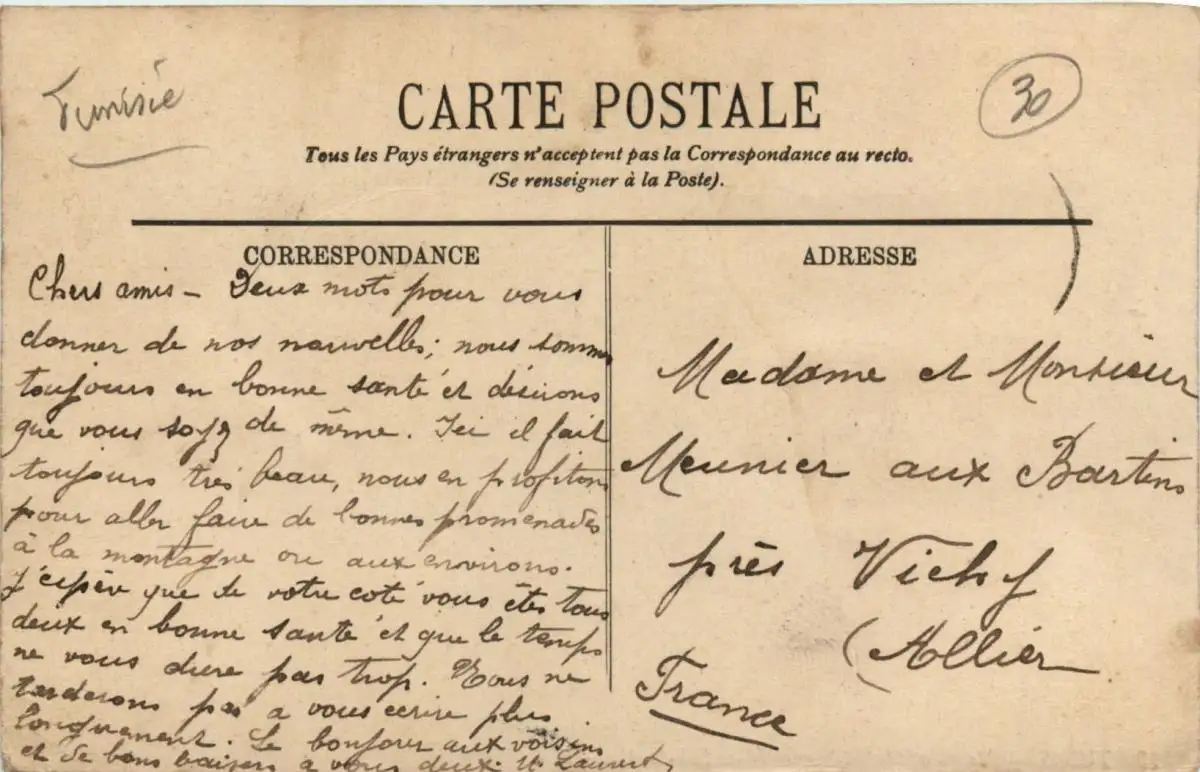 Tunisie
30
CARTE POSTALE
Tous les Pays étrangers n'acceptent pas la Correspondance au recto.
(Se renseigner à la Poste).
CORRESPONDANCE
Chers amis - Deux mots pour vous
donner de nos nouvelles; nous sommes
toujours en bonne santé et désirons
que vous soyez de même. Ici il fait
toujours très beau, nous en profitons
pour aller faire de bonnes promenades
à la montagne ou aux environs.
J'espère que de votre coté vous êtes tous
deux en bonne santé et que le temps
ne vous dure pas trop. Nous ne
tarderons pas a vous ecrire plus
longuement. Le bonjour aux voisins
et de bons baisers a vous deux. Laurent
ADRESSE
Madame et Monsieur
Meunier aux Bartins
près Vichy
(Allier
France